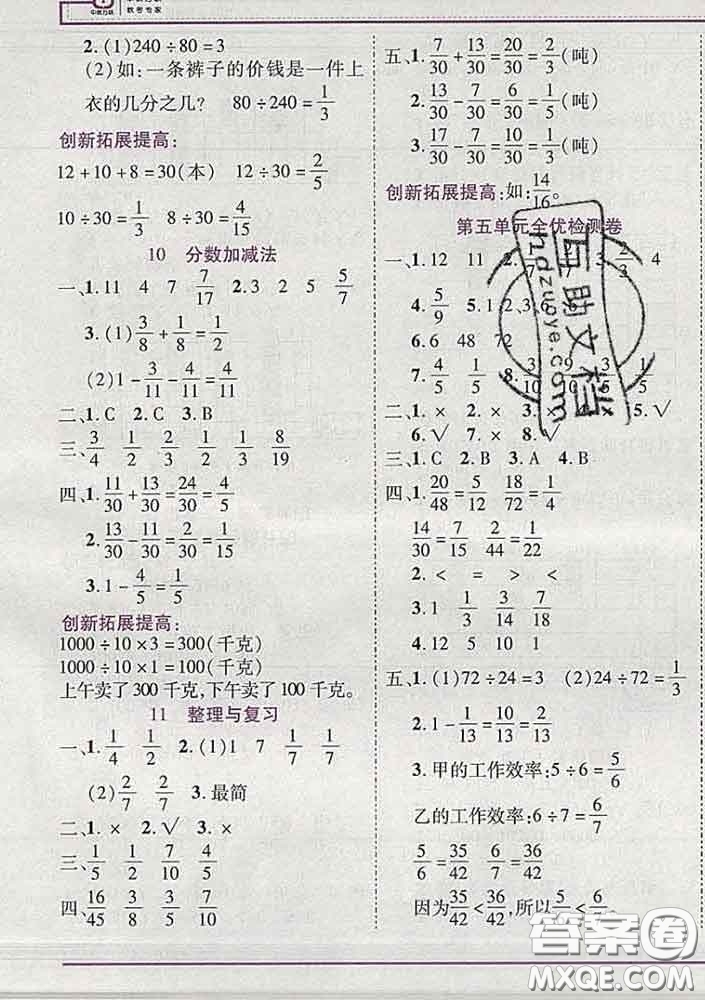 中教万联
教考专家
2. (1)240÷80=3
(2)如:一条裤子的价钱是一件上
衣的几分之几? 80÷240=1/3
创新拓展提高:
12+10+8=30(本) 12÷30=2/5
10÷30=1/3 8÷30=4/15
10 分数加减法
一、1. 11 4 7 7/17 2. 3 2 5 5/7
3. (1)3/8+1/8=1/2
(2)1-3/11-4/11=4/11
二、1. C 2. C 3. B
三、3/4 1/2 1/2 1/2 1/3 8/19
四、1. 11/30+13/30=24/30=4/5
2. 13/30-11/30=2/30=1/15
3. 1-4/5=1/5
创新拓展提高:
1000÷10×3=300(千克)
1000÷10×1=100(千克)
上午卖了300千克,下午卖了100千克。
11 整理与复习
一、1. 1/4 1/2 2. (1)1 7 1/7 1/7
(2)2/7 2/7 3. 最简
二、1. × 2. √ 3. × 4. √
三、1/5 1/2 7/10 4/5
四、16/45 3/8 3/5 7/10
五、1. 7/30+13/30=20/30=2/3(吨)
2. 13/30-7/30=6/30=1/5(吨)
3. 17/30-7/30=10/30=1/3(吨)
创新拓展提高:如:14/16。
第五单元全优检测卷
一、1. 12 11 2. 3 2/3 4
4. 5/9 5. 1 2 3 6
6. 6 48 72
7. 4/5 1/5 8. 3/10 9/10 1/5
二、1. × 2. × 3. × 5. √
6. √ 7. × 8. ×
三、1. C 2. B 3. A 4. B
四、1. 20/48=5/12 18/72=1/4
14/30=7/15 2/44=1/22
2. < = > <
3. 1 1/3 3/14 7/18
4. 12 5 10 1
五、1. (1)72÷24=3 (2)24÷72=1/3
2. 1-1/13=10/13=2/13
3. 甲的工作效率:5÷6=5/6
乙的工作效率:6÷7=6/7
5/6=35/42 6/7=36/42
因为35/42<36/42,所以5/6<6/7
互助文档
hdzuoye.com
答案圈
MXQE.COM